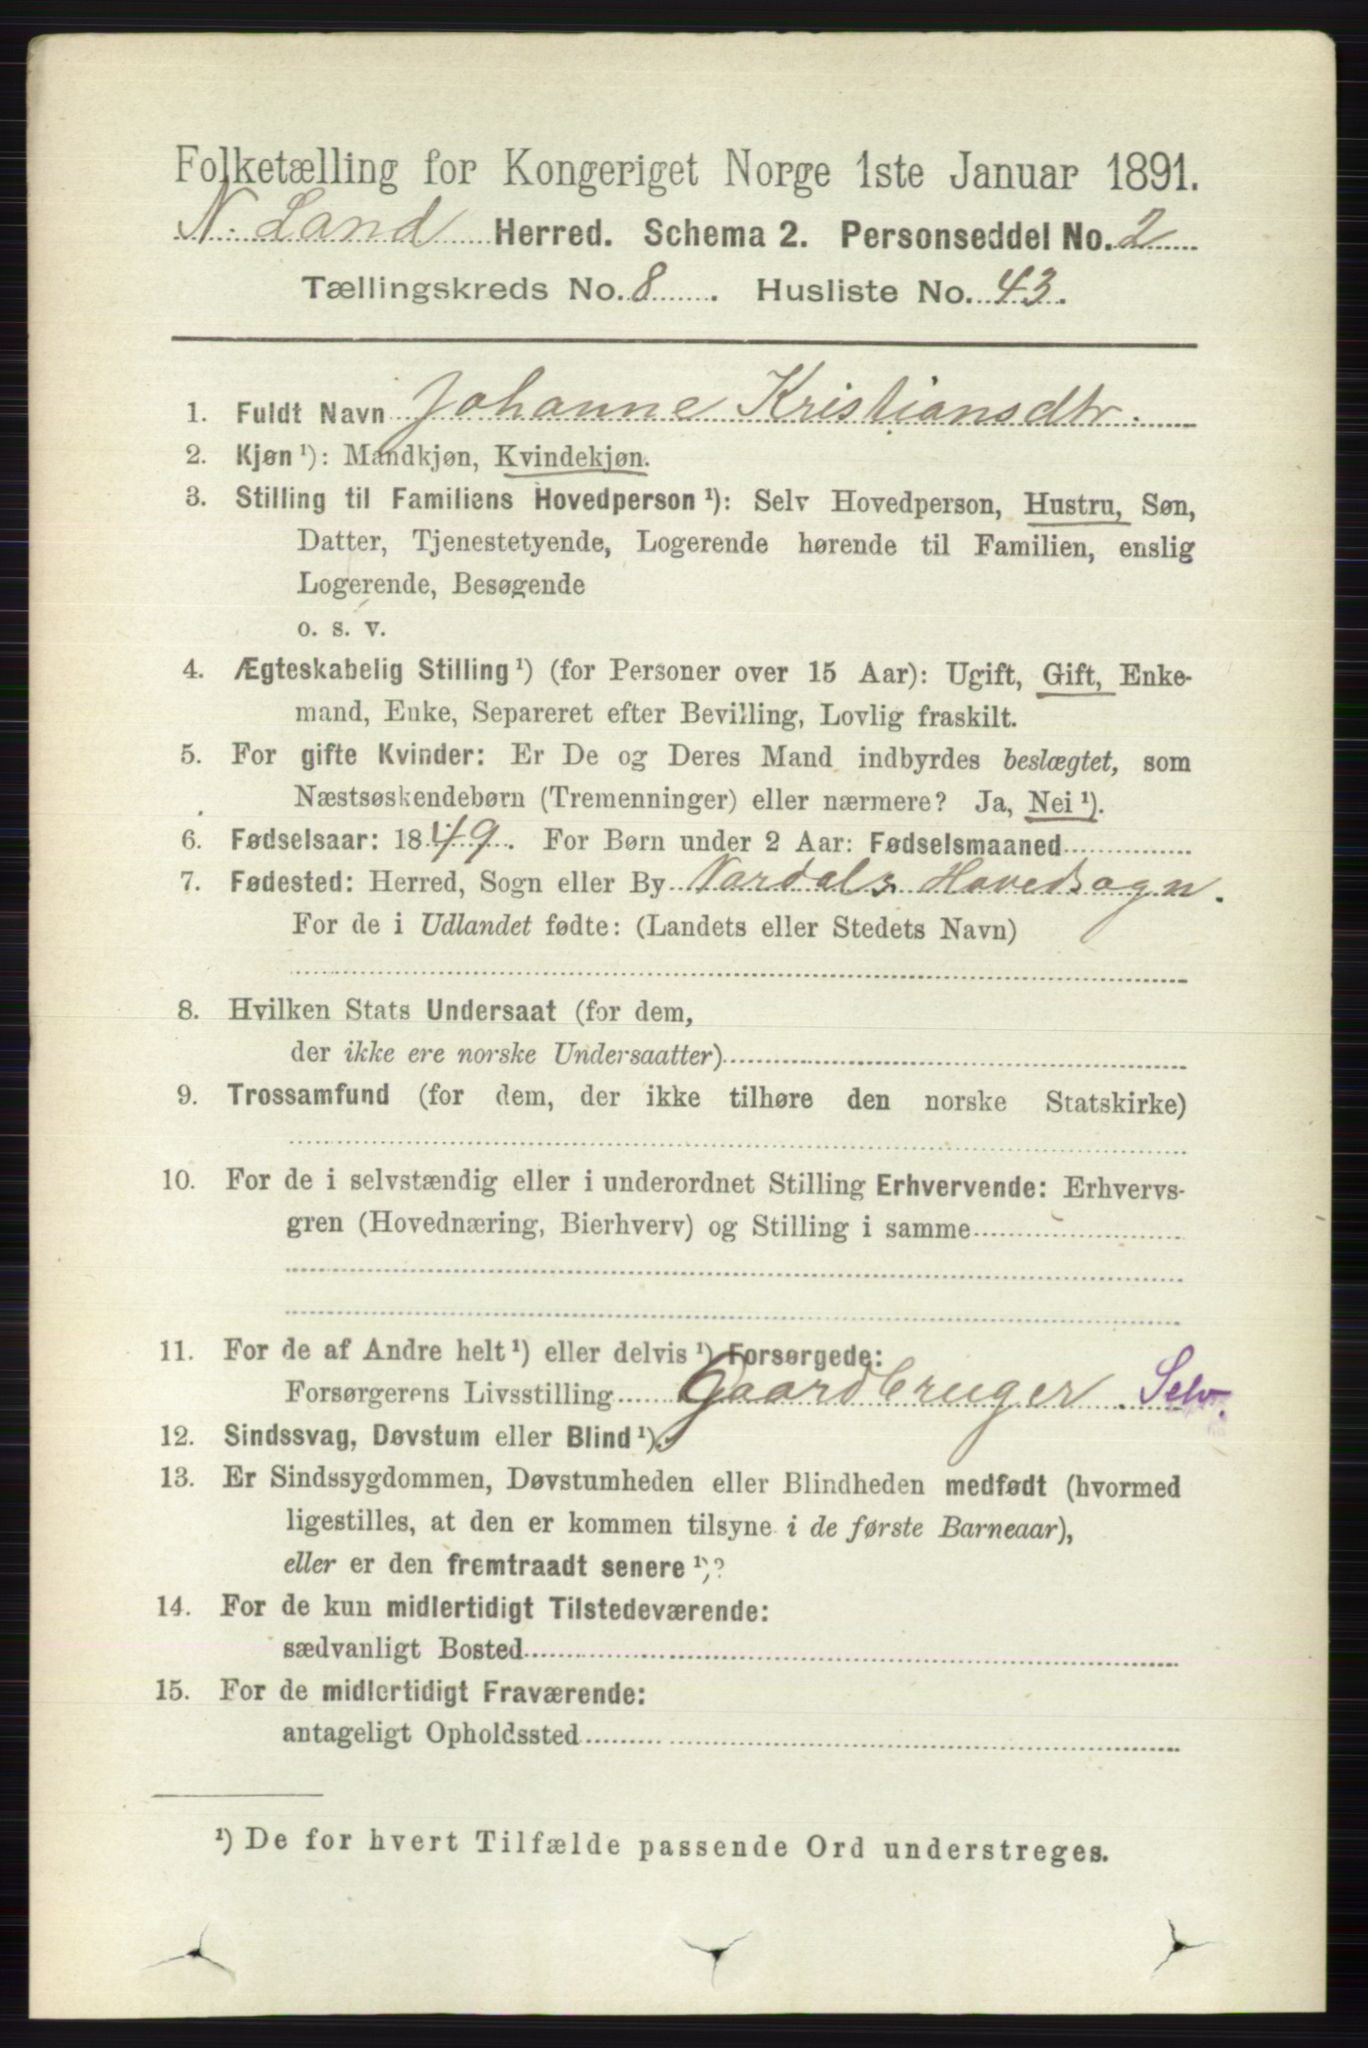 Folketælling for Kongeriget Norge 1ste Januar 1891.
N. Land Herred. Schema 2. Personseddel No. 2
Tællingskreds No. 8. Husliste No. 43.
1. Fuldt Navn Johanne Kristiansdtr.
2. Kjøn¹): Mandkjøn, Kvindekjøn.
3. Stilling til Familiens Hovedperson¹): Selv Hovedperson, Hustru, Søn,
Datter, Tjenestetyende, Logerende hørende til Familien, enslig
Logerende, Besøgende
o. s. v.
4. Ægteskabelig Stilling¹) (for Personer over 15 Aar): Ugift, Gift, Enke-
mand, Enke, Separeret efter Bevilling, Lovlig fraskilt.
5. For gifte Kvinder: Er De og Deres Mand indbyrdes beslægtet, som
Næstsøskendebørn (Tremenninger) eller nærmere? Ja, Nei¹).
6. Fødselsaar: 1849. For Børn under 2 Aar: Fødselsmaaned
7. Fødested: Herred, Sogn eller By Nordals Hovedsogn.
For de i Udlandet fødte: (Landets eller Stedets Navn)
8. Hvilken Stats Undersaat (for dem,
der ikke ere norske Undersaatter)
9. Trossamfund (for dem, der ikke tilhøre den norske Statskirke)
10. For de i selvstændig eller i underordnet Stilling Erhvervende: Erhvervs-
gren (Hovednæring, Bierhverv) og Stilling i samme
11. For de af Andre helt¹) eller delvis¹) Forsørgede:
Forsørgerens Livsstilling Gaardbruger. Selv.
12. Sindssvag, Døvstum eller Blind¹).
13. Er Sindssygdommen, Døvstumheden eller Blindheden medfødt (hvormed
ligestilles, at den er kommen tilsyne i de første Barneaar),
eller er den fremtraadt senere¹)?
14. For de kun midlertidigt Tilstedeværende:
sædvanligt Bosted
15. For de midlertidigt Fraværende:
antageligt Opholdssted
¹) De for hvert Tilfælde passende Ord understreges.